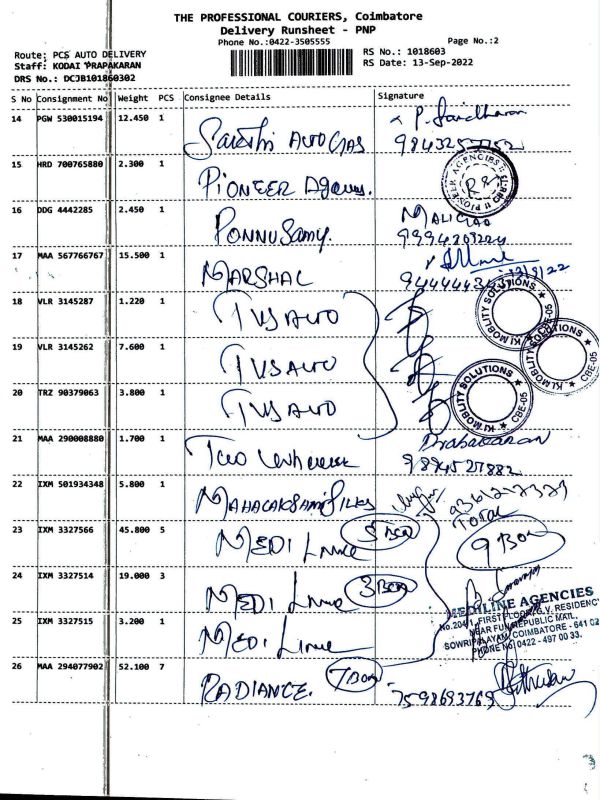 THE PROFESSIONAL COURIERS, Coimbatore
Delivery Runsheet - PNP
Phone No.:0422-3505555
Page No.:2
Route: PCS AUTO DELIVERY
RS No.: 1018603
Staff: KODAI PRAPAKARAN
RS Date: 13-Sep-2022
DRS No.: DCJB101860302
S No Consignment No Weight PCS Consignee Details Signature
14 PGW 530015194 12.450 1 Sakthi AUTO GAS P.
15 HRD 700765880 2.300 1 PIONEER
PIONEER AGENCIES
16 DDG 4442285 2.450 1 PONNUSamy.
17 MAA 567766767 15.500 1 MARSHAL
13/9/22
18 VLR 3145287 1.220 1 TVS AUTO
KI MOBILITY SOLUTIONS CBE-05
19 VLR 3145262 7.600 1 TVS AUTO
KI MOBILITY SOLUTIONS CBE-05
20 TRZ 90379063 3.800 1 TVS AUTO
KI MOBILITY SOLUTIONS CBE-05
21 MAA 290008880 1.700 1 Two Prabakaran
22 IXM 501934348 5.800 1
TOTAL
23 IXM 3327566 45.800 5 MEDI Line 5 Box 9 Box
24 IXM 3327514 19.000 3 MEDI Line 3 Box
MEDILINE AGENCIES
No.204/1, FIRST FLOOR, G.V. RESIDENCY
NEAR FUN REPUBLIC MALL,
25 IXM 3327515 3.200 1 MEDI Line
SOWRIPALAYAM, COIMBATORE - 641 02
PHONE NO: 0422 - 497 00 33.
26 MAA 294077902 52.100 7 RADIANCE. 7 Box 7598693769